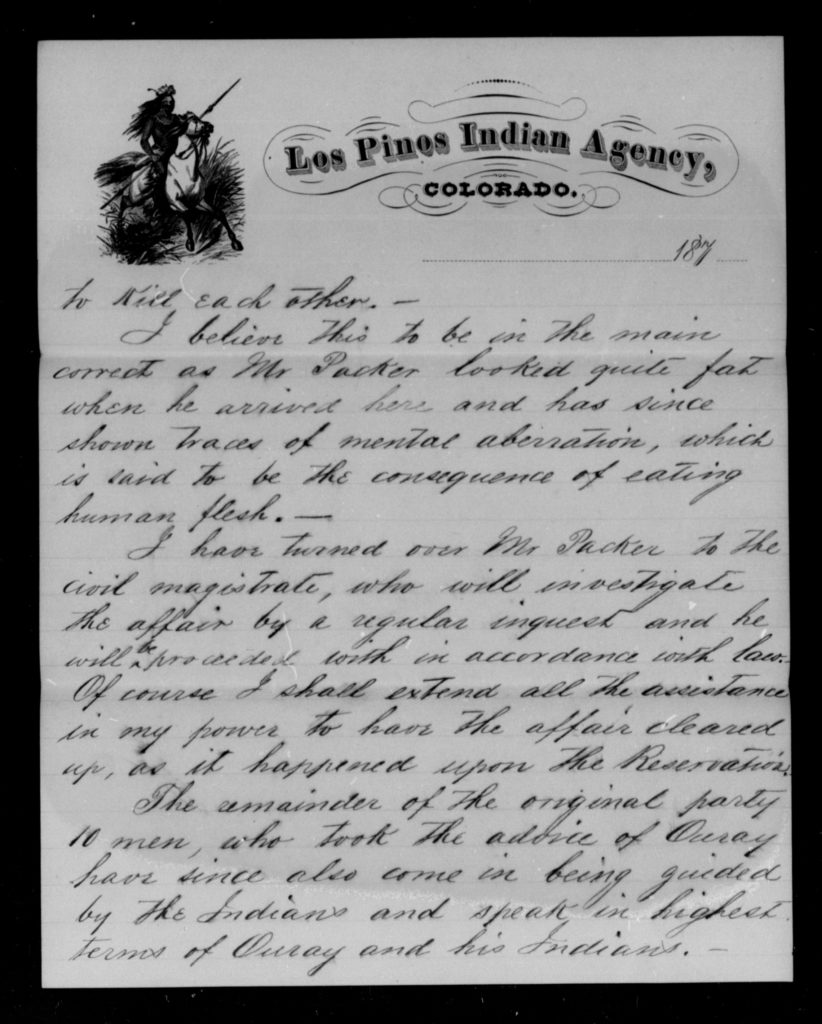 Los Pinos Indian Agency,
COLORADO.
187
to Kill each other. —
I believe this to be in the main
correct as Mr Packer looked quite fat
when he arrived here and has since
shown traces of mental aberration, which
is said to be the consequence of eating
human flesh. —
I have turned over Mr Packer to the
civil magistrate, who will investigate
the affair by a regular inquest and he
will be proceeded with in accordance with law.
Of course I shall extend all the assistance
in my power to have the affair cleared
up, as it happened upon the Reservation.
The remainder of the original party
10 men, who took the advice of Ouray
have since also come in being guided
by the Indians and speak in highest
terms of Ouray and his Indians. —